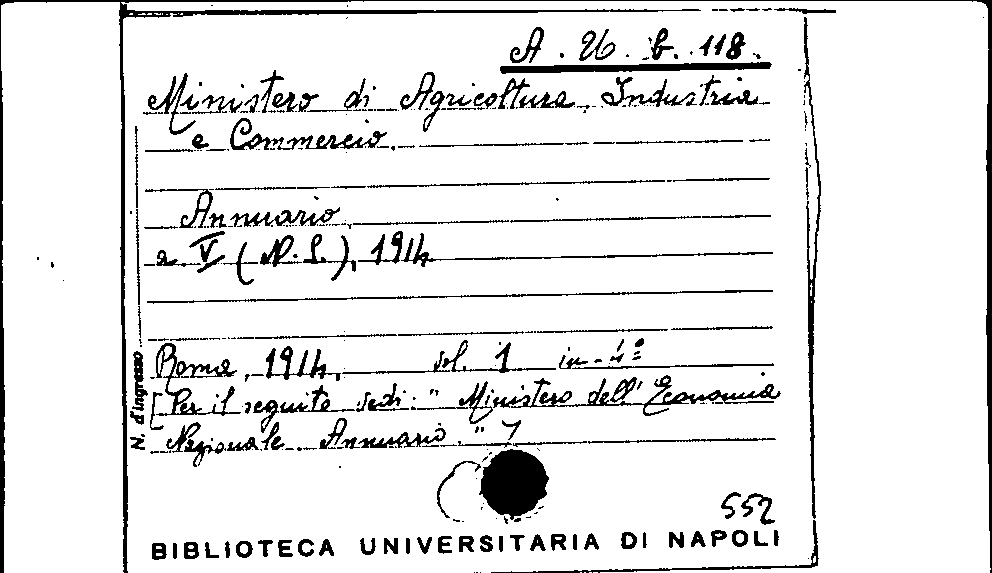 A. 26. b. 118.
Ministero di Agricoltura, Industria
e Commercio.
Annuario
a. V (N.S.), 1914
Roma, 1914. vol. 1 in-4º
[Per il seguito vedi: " Ministero dell'Economia
Nazionale. Annuario." ]
N. d'ingresso
552
BIBLIOTECA UNIVERSITARIA DI NAPOLI